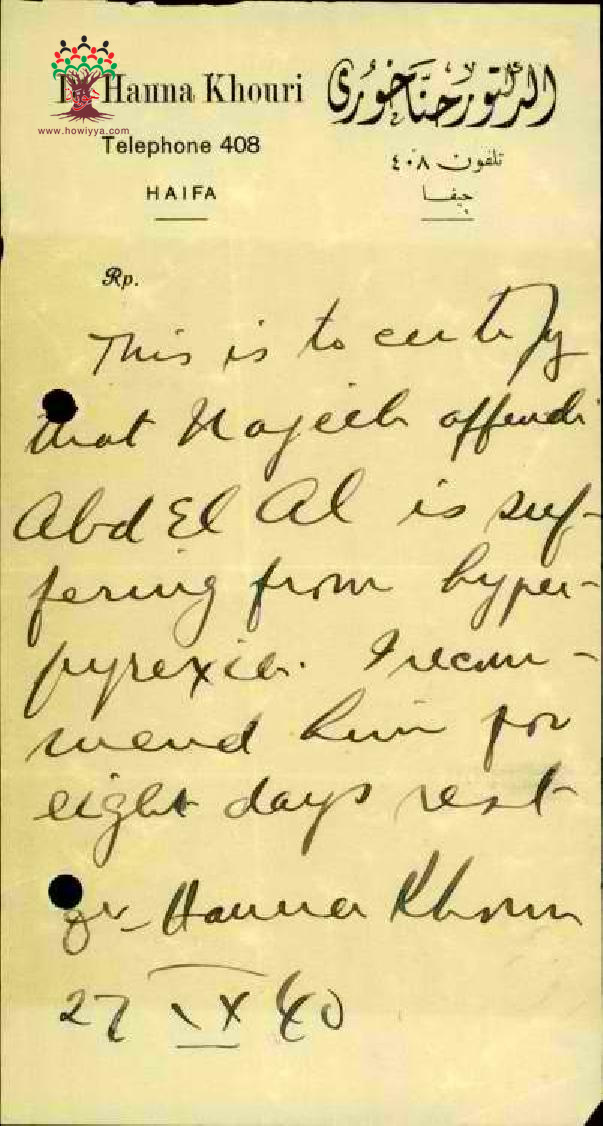 Dr Hanna Khouri
الدكتور حنا خوري
www.howiyya.com
Telephone 408
تلفون ٤٠٨
HAIFA
حيفا
Rp.
This is to certify
that Najeeb effendi
Abd El Al is suf-
fering from hyper-
pyrexia. I recom-
mend him for
eight days rest
Dr. Hanna Khouri
27 IX 40